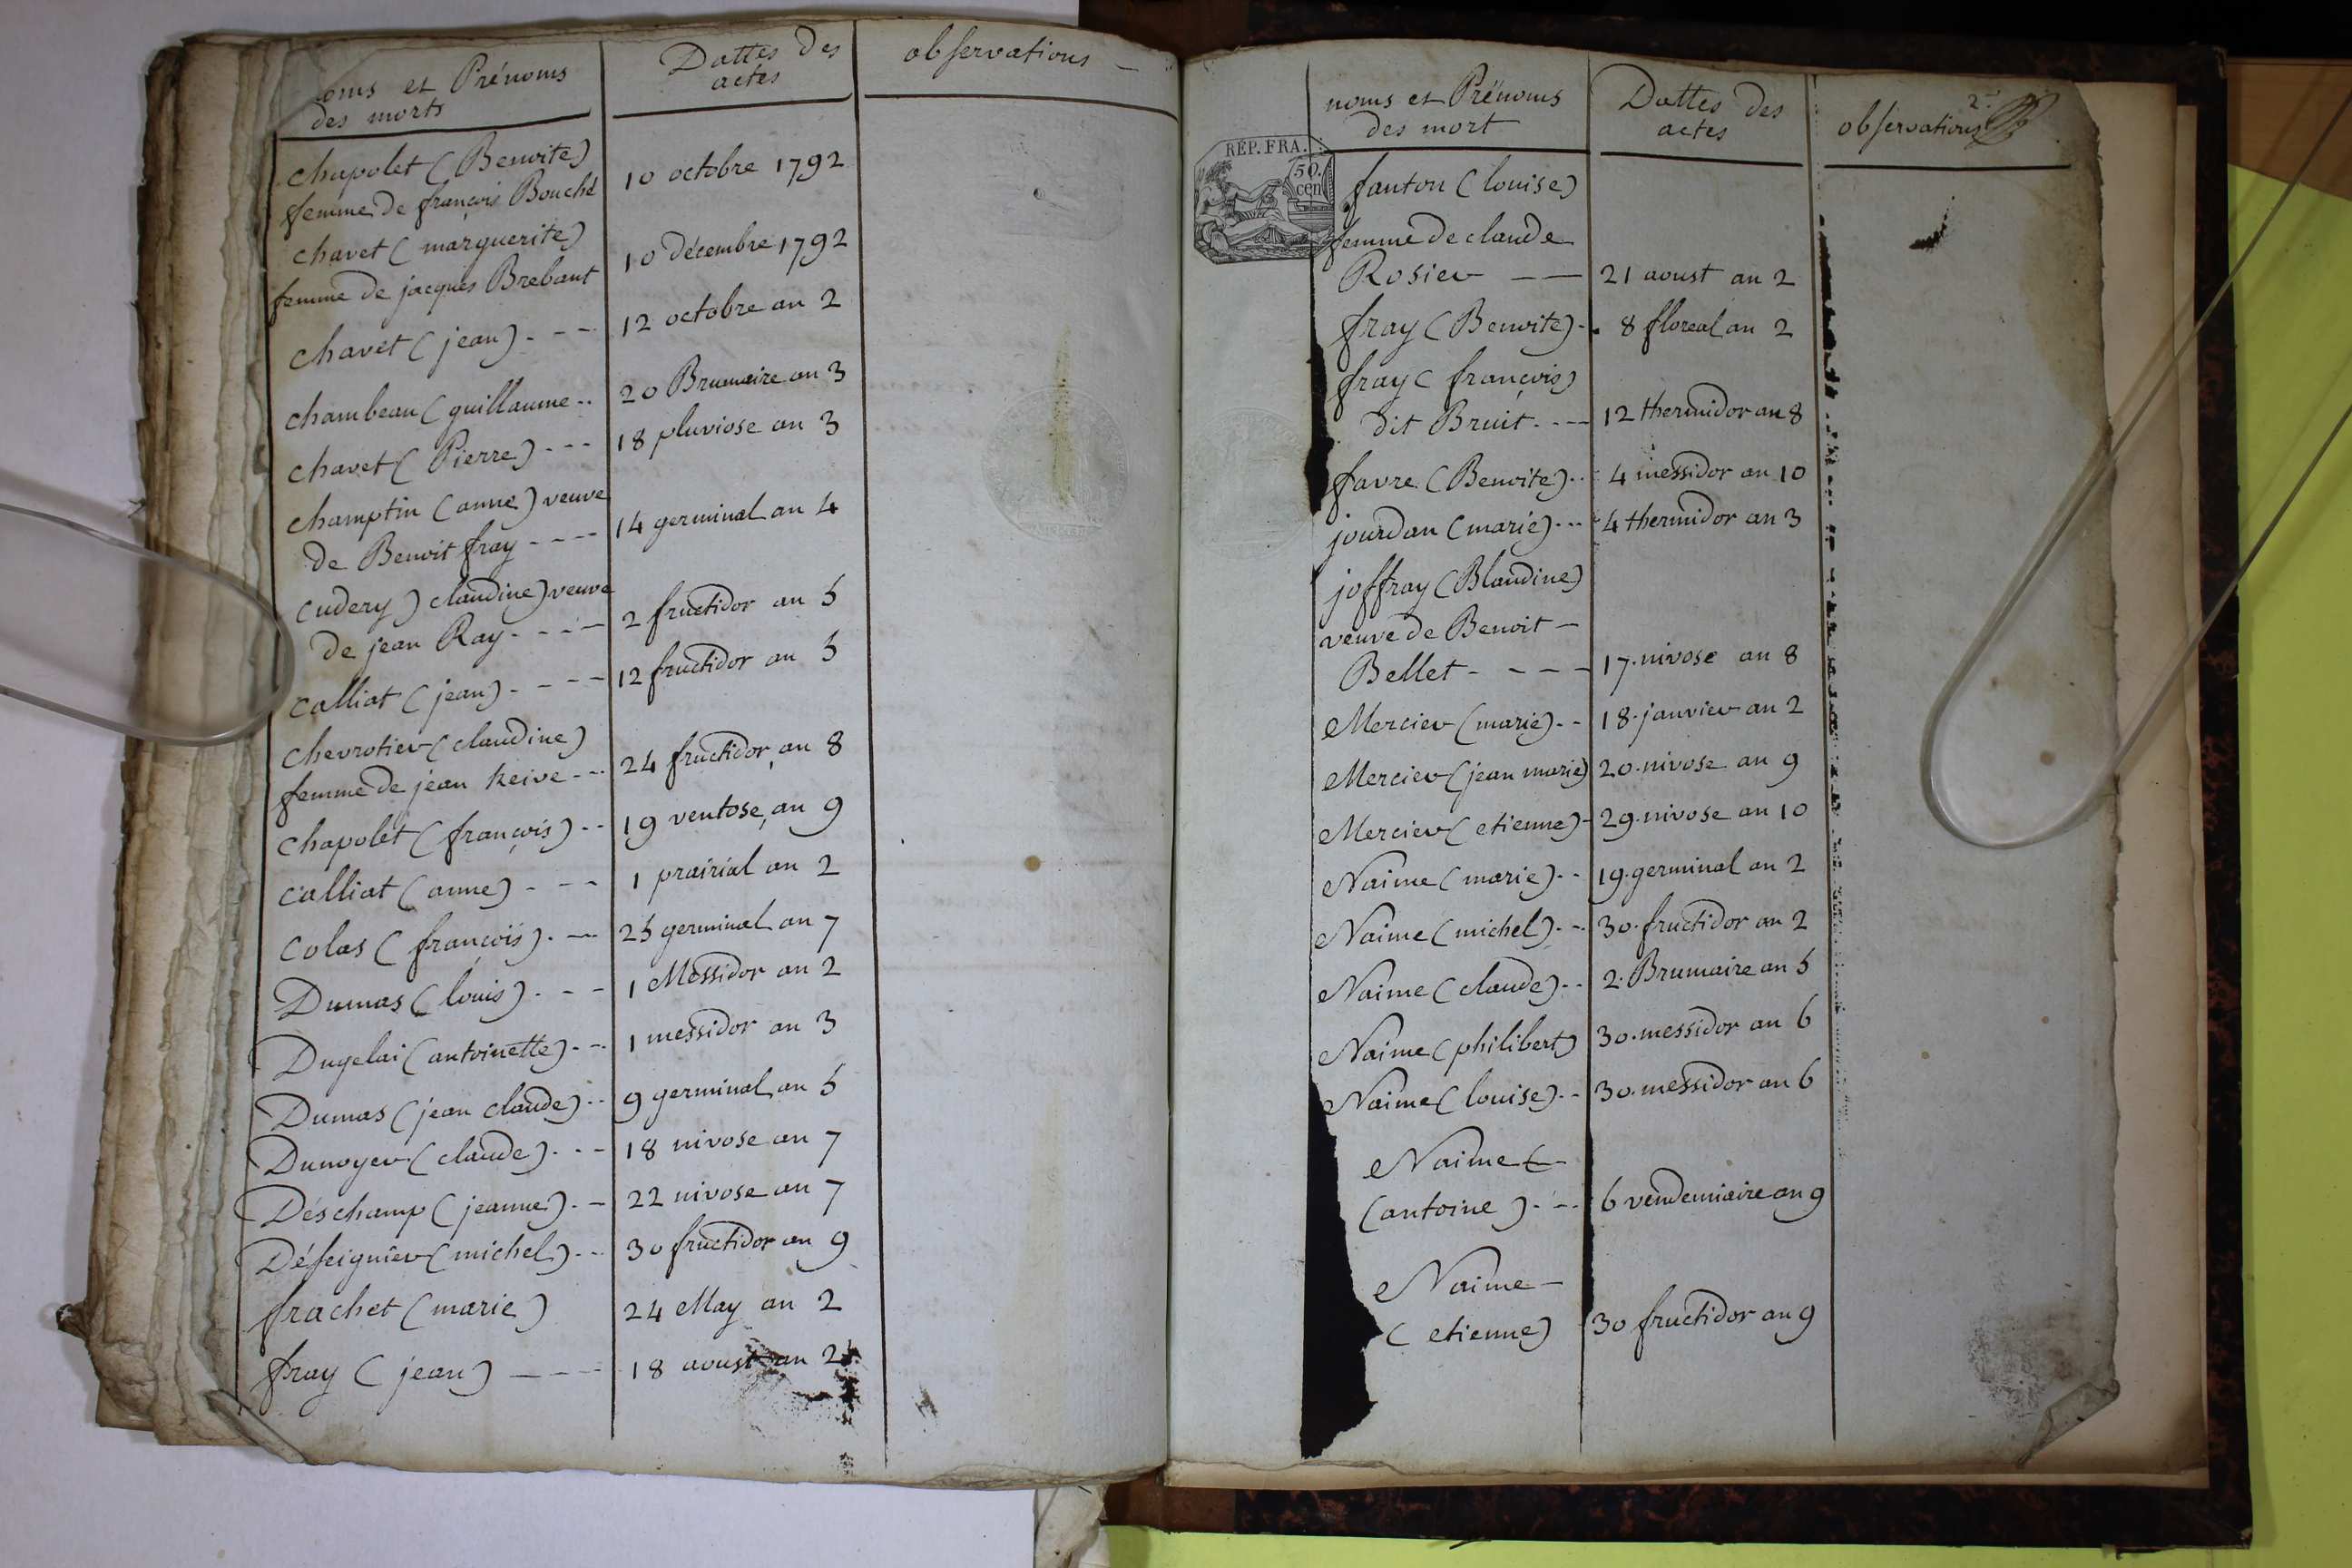 oms et Prénoms
des morts
Dattes des
actes
observations
chapolet (Benoite)
femme de françois Bouché 10 octobre 1792
chavet (marguerite)
femme de jacques Brebant 10 décembre 1792
chavet (jean) - - - 12 octobre an 2
chambeau (guillaume - - 20 Brumaire an 3
chavet (Pierre) - - - 18 pluviose an 3
champtin (anne) veuve
de Benoit fray - - - - 14 germinal an 4
cudery) claudine) veuve
de jean Ray - - - - 2 fructidor an 5
calliat (jean) - - - - 12 fructidor an 5
chevrotier (claudine)
femme de jean keive - - - 24 fructidor an 8
chapolet (françois) - - 19 ventose, an 9
calliat (anne) - - - 1 prairial an 2
colas (françois) - - 25 germinal an 7
Dumas (louis) - - - 1 Messidor an 2
Dugelai (antoinette) - - 1 messidor an 3
Dumas (jean claude) - - 9 germinal an 5
Dunoyer (claude) - - - 18 nivose an 7
Déschamp (jeanne) - - 22 nivose an 7
Déseignier (michel) - - 30 fructidor an 9
frachet (marie) 24 May an 2
fray (jean) - - - - 18 aoust an 2
noms et Prénoms
des mort
Dattes des
actes
observations
2
RÉP. FRA.
50.
cen
fanton (louise)
femme de claude
Rosier - - 21 aoust an 2
fray (Benoite) - 8 floreal an 2
fray (françois)
dit Bruit - - - 12 thermidor an 8
favre (Benoite) - - 4 messidor an 10
jourdan (marie) - - - 4 thermidor an 3
joffray (Blandine)
veuve de Benoit -
Bellet - - - - 17. nivose an 8
Mercier (marie) - - 18. janvier an 2
Mercier (jean marie) 20. nivose an 9
Mercier (etienne) - 29. nivose an 10
Naime (marie) - - 19. germinal an 2
Naime (michel) - - 30. fructidor an 2
Naime (claude) - - 2. Brumaire an 5
Naime (philibert) 30. messidor an 6
Naime (louise) - - 30. messidor an 6
Naime (
(antoine) - - - 6 vendemiaire an 9
Naime -
(etienne) 30 fructidor an 9